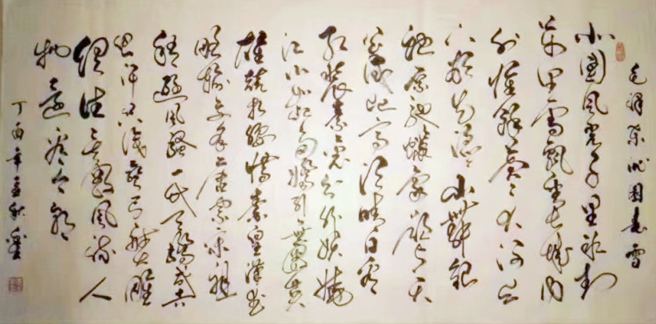 毛澤东沁园春雪
北國风光千里冰封
万里雪飘望长城内
外惟餘莽莽大河上
下顿失滔滔山舞银
蛇原驰蜡象欲与天
公试比高须晴日看
红装素裹分外妖娆
江山如此多娇引无数英
雄競折腰惜秦皇漢武
略输文采唐宗宋祖
稍逊风骚一代天骄成吉
思汗只识弯弓射大雕
俱往矣数风流人
物還看今朝
丁酉年孟秋